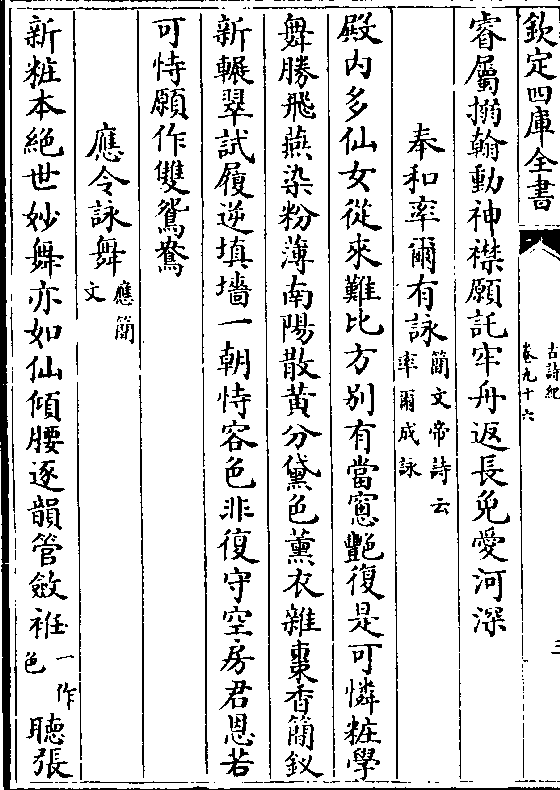 欽定四庫全書
古詩紀
卷九十六
三
睿屬摛翰動神襟願託牢舟返長免愛河深
奉和率爾有詠簡文帝詩云率爾成詠
殿内多仙女從來難比方別有當窻艶復是可憐粧學
舞勝飛燕染粉薄南陽散黄分黛色薰衣雜棗香簡釵
新輾翠試履逆填墻一朝恃容色非復守空房君恩若
可恃願作雙鴛鴦
應令詠舞應簡文
新粧本絶世妙舞亦如仙傾腰逐韻管斂袿一作色聴張